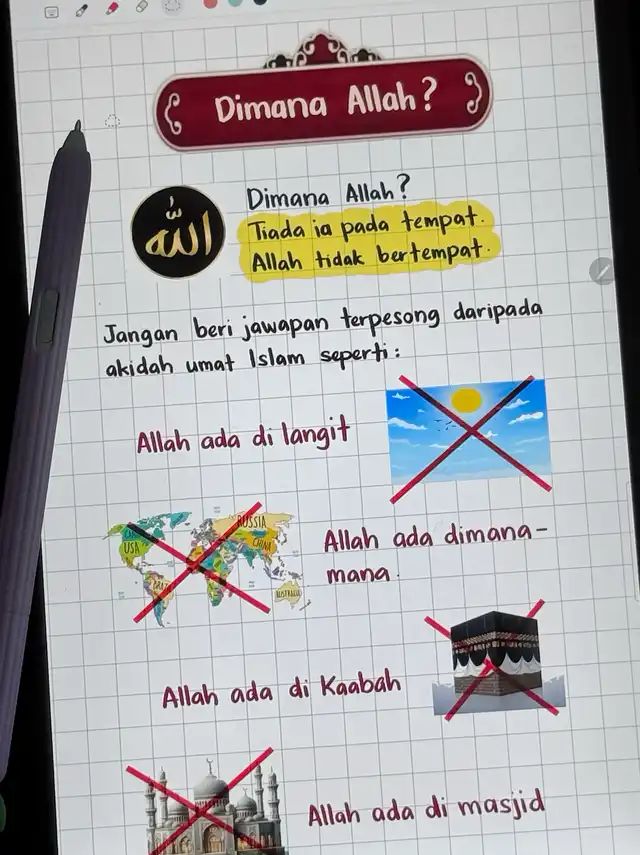 Dimana Allah?
Dimana Allah?
Tiada ia pada tempat.
Allah tidak bertempat.
الله
Jangan beri jawapan terpesong daripada
akidah umat Islam seperti:
Allah ada di langit
RUSSIA
USA
CHINA
BRAZIL
AUSTRALIA
Allah ada dimana-
mana.
Allah ada di Kaabah
Allah ada di masjid